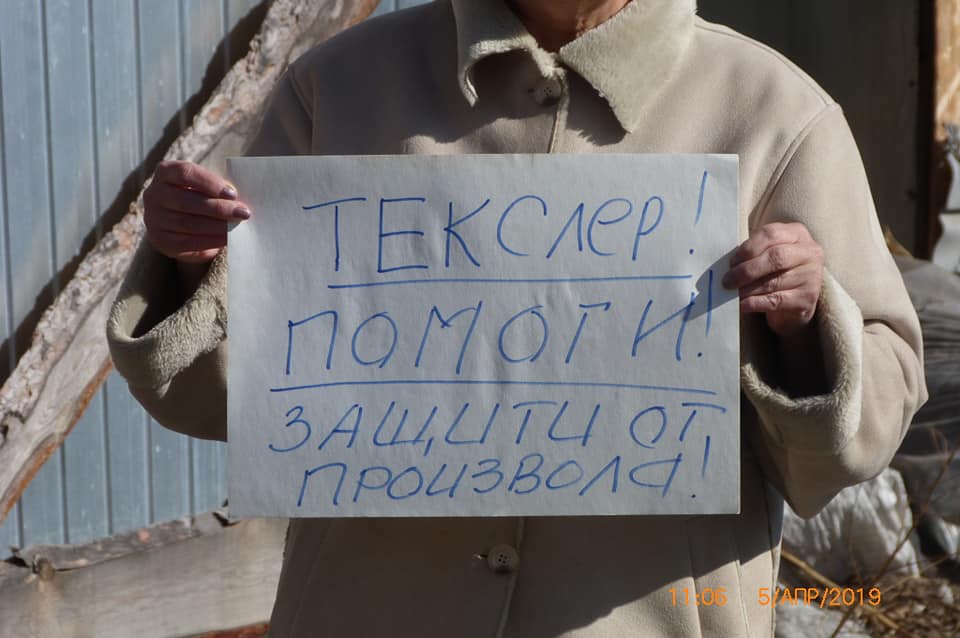 ТЕКСлер!
ПОМОГИ!
ЗАЩИТИ ОТ
ПРОИЗВОЛА!
11:06 5/АПР/2019